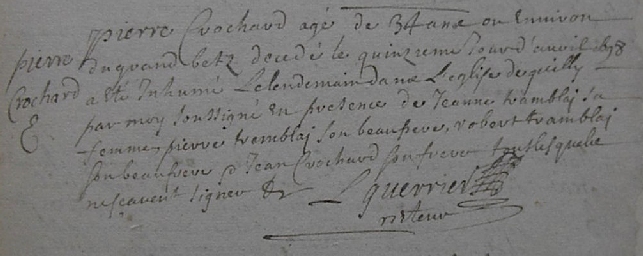 pierre
Crochard
&
pierre Crochard agé de 34 ans ou Environ
du grand betz decedé le quinzieme Jour d'avril 1698
a été Inhumé Le lendemain dans L'eglise de quilly
par moy soussigné En presence de Jeanne tramblaj sa
femme, pierre tremblaj son beaufrere, robert tramblaj
son beaufrere & Jean Crochard son frere tous lesquels
ne scavent signer &c
L guerrier
recteur